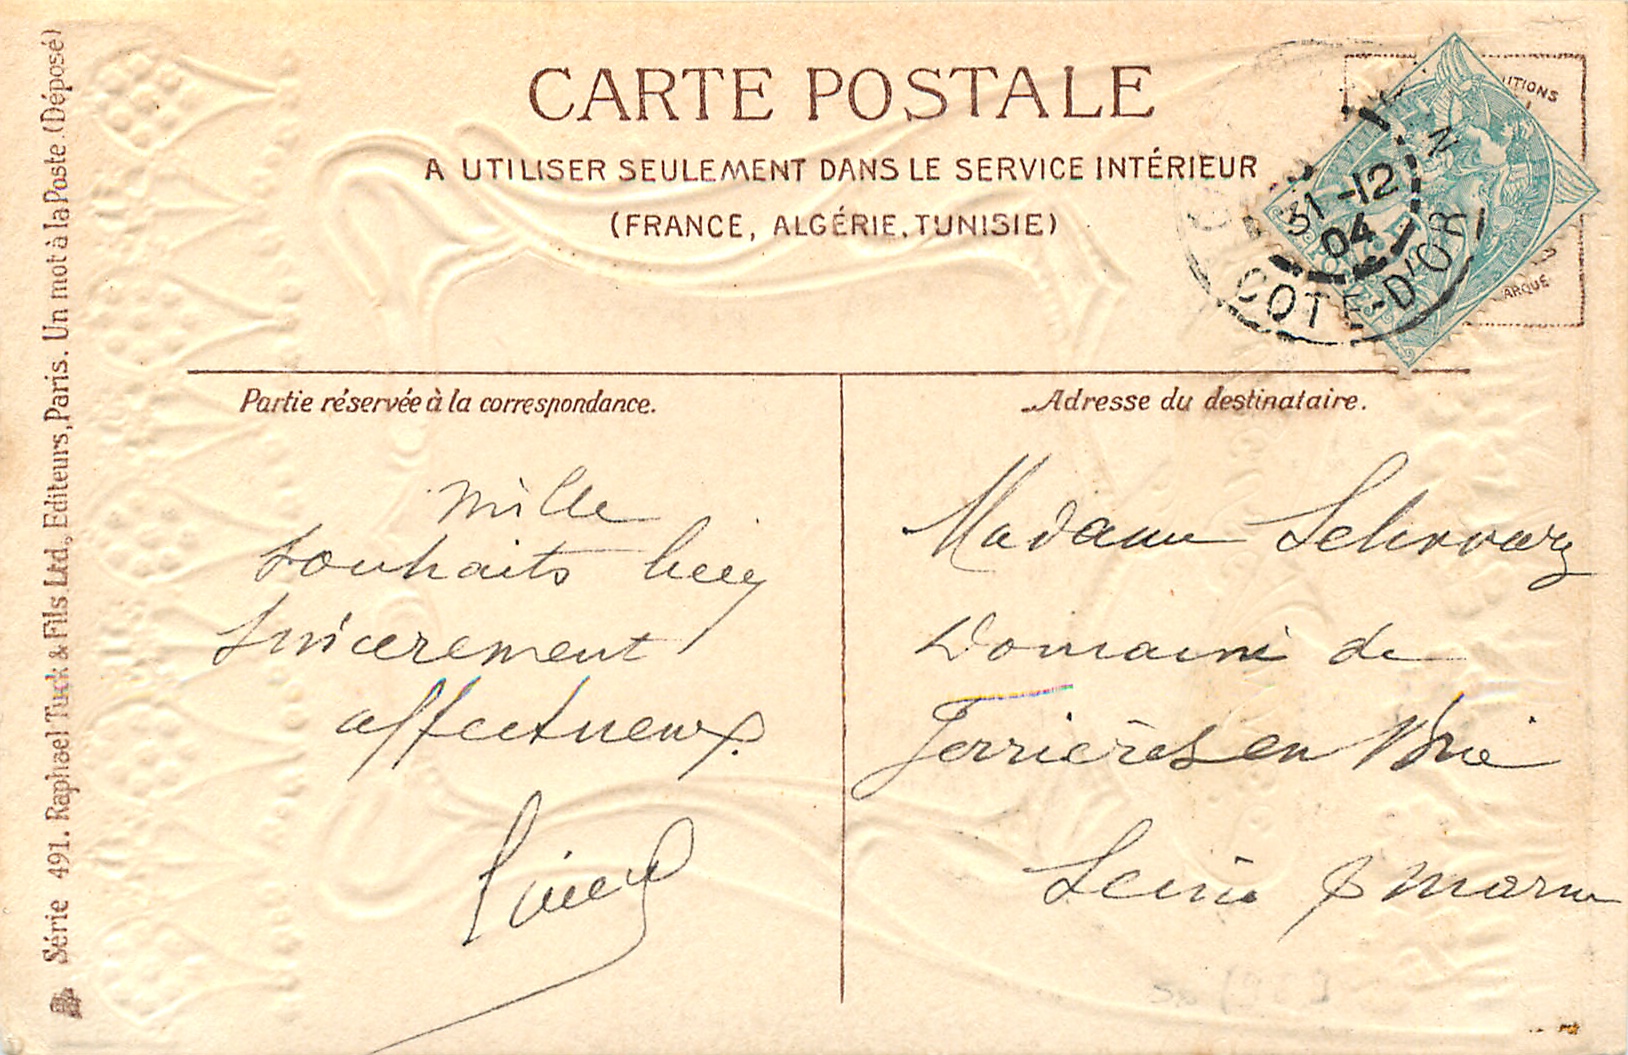 CARTE POSTALE
A UTILISER SEULEMENT DANS LE SERVICE INTÉRIEUR
(FRANCE, ALGÉRIE, TUNISIE)
UTIONS
ARQUE
31-12
04
COTE-D'OR
Partie réservée à la correspondance.
Mille
souhaits bien
sincerement
affectueux.
Adresse du destinataire.
Madame Schwarz
Domaine de
Ferrières en Brie
Seine & Marne
Série 491. Raphael Tuck & Fils Ltd., Editeurs, Paris. Un mot à la Poste (Déposé)